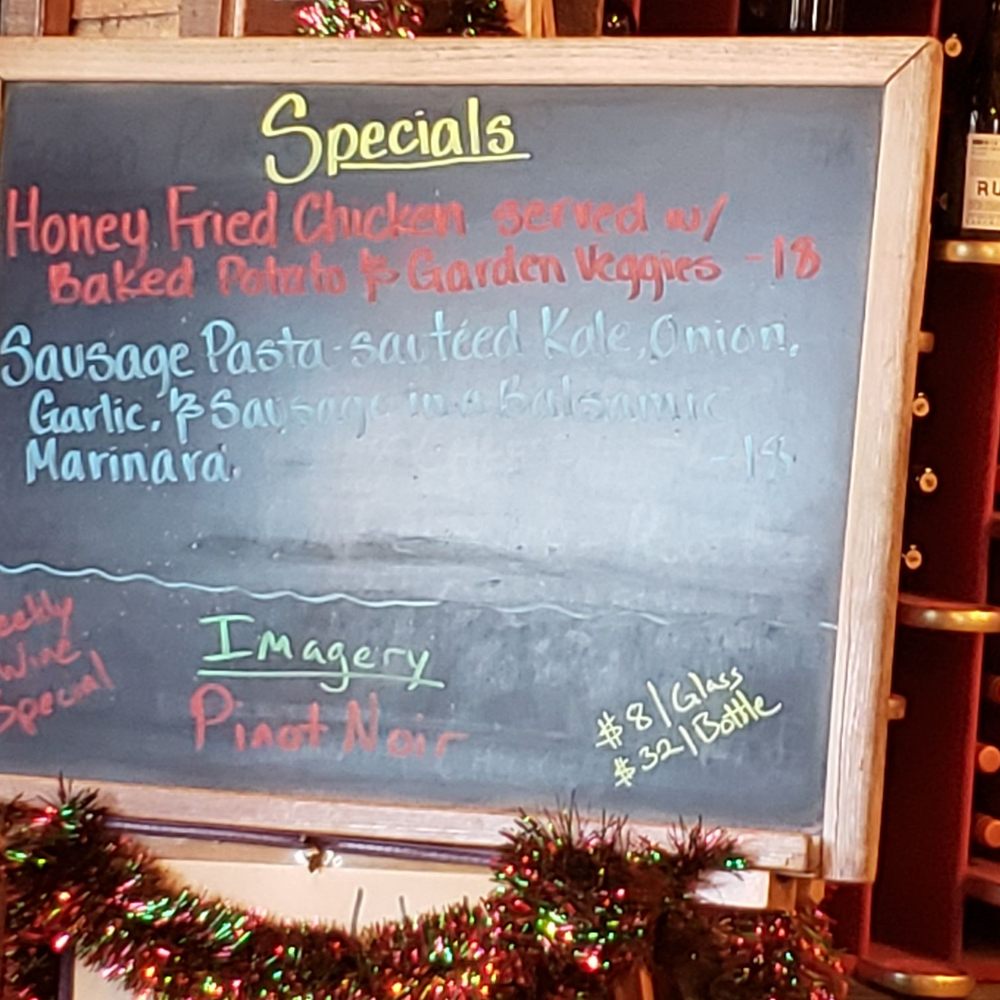 Specials
Honey Fried Chicken served w/
Baked Potato & Garden Veggies - 18
Sausage Pasta - sautéed Kale, Onion,
Garlic, & Sausage in a Balsamic
Marinara. - 18
Wine
Special
Imagery
Pinot Noir
$8/Glass
$32/Bottle